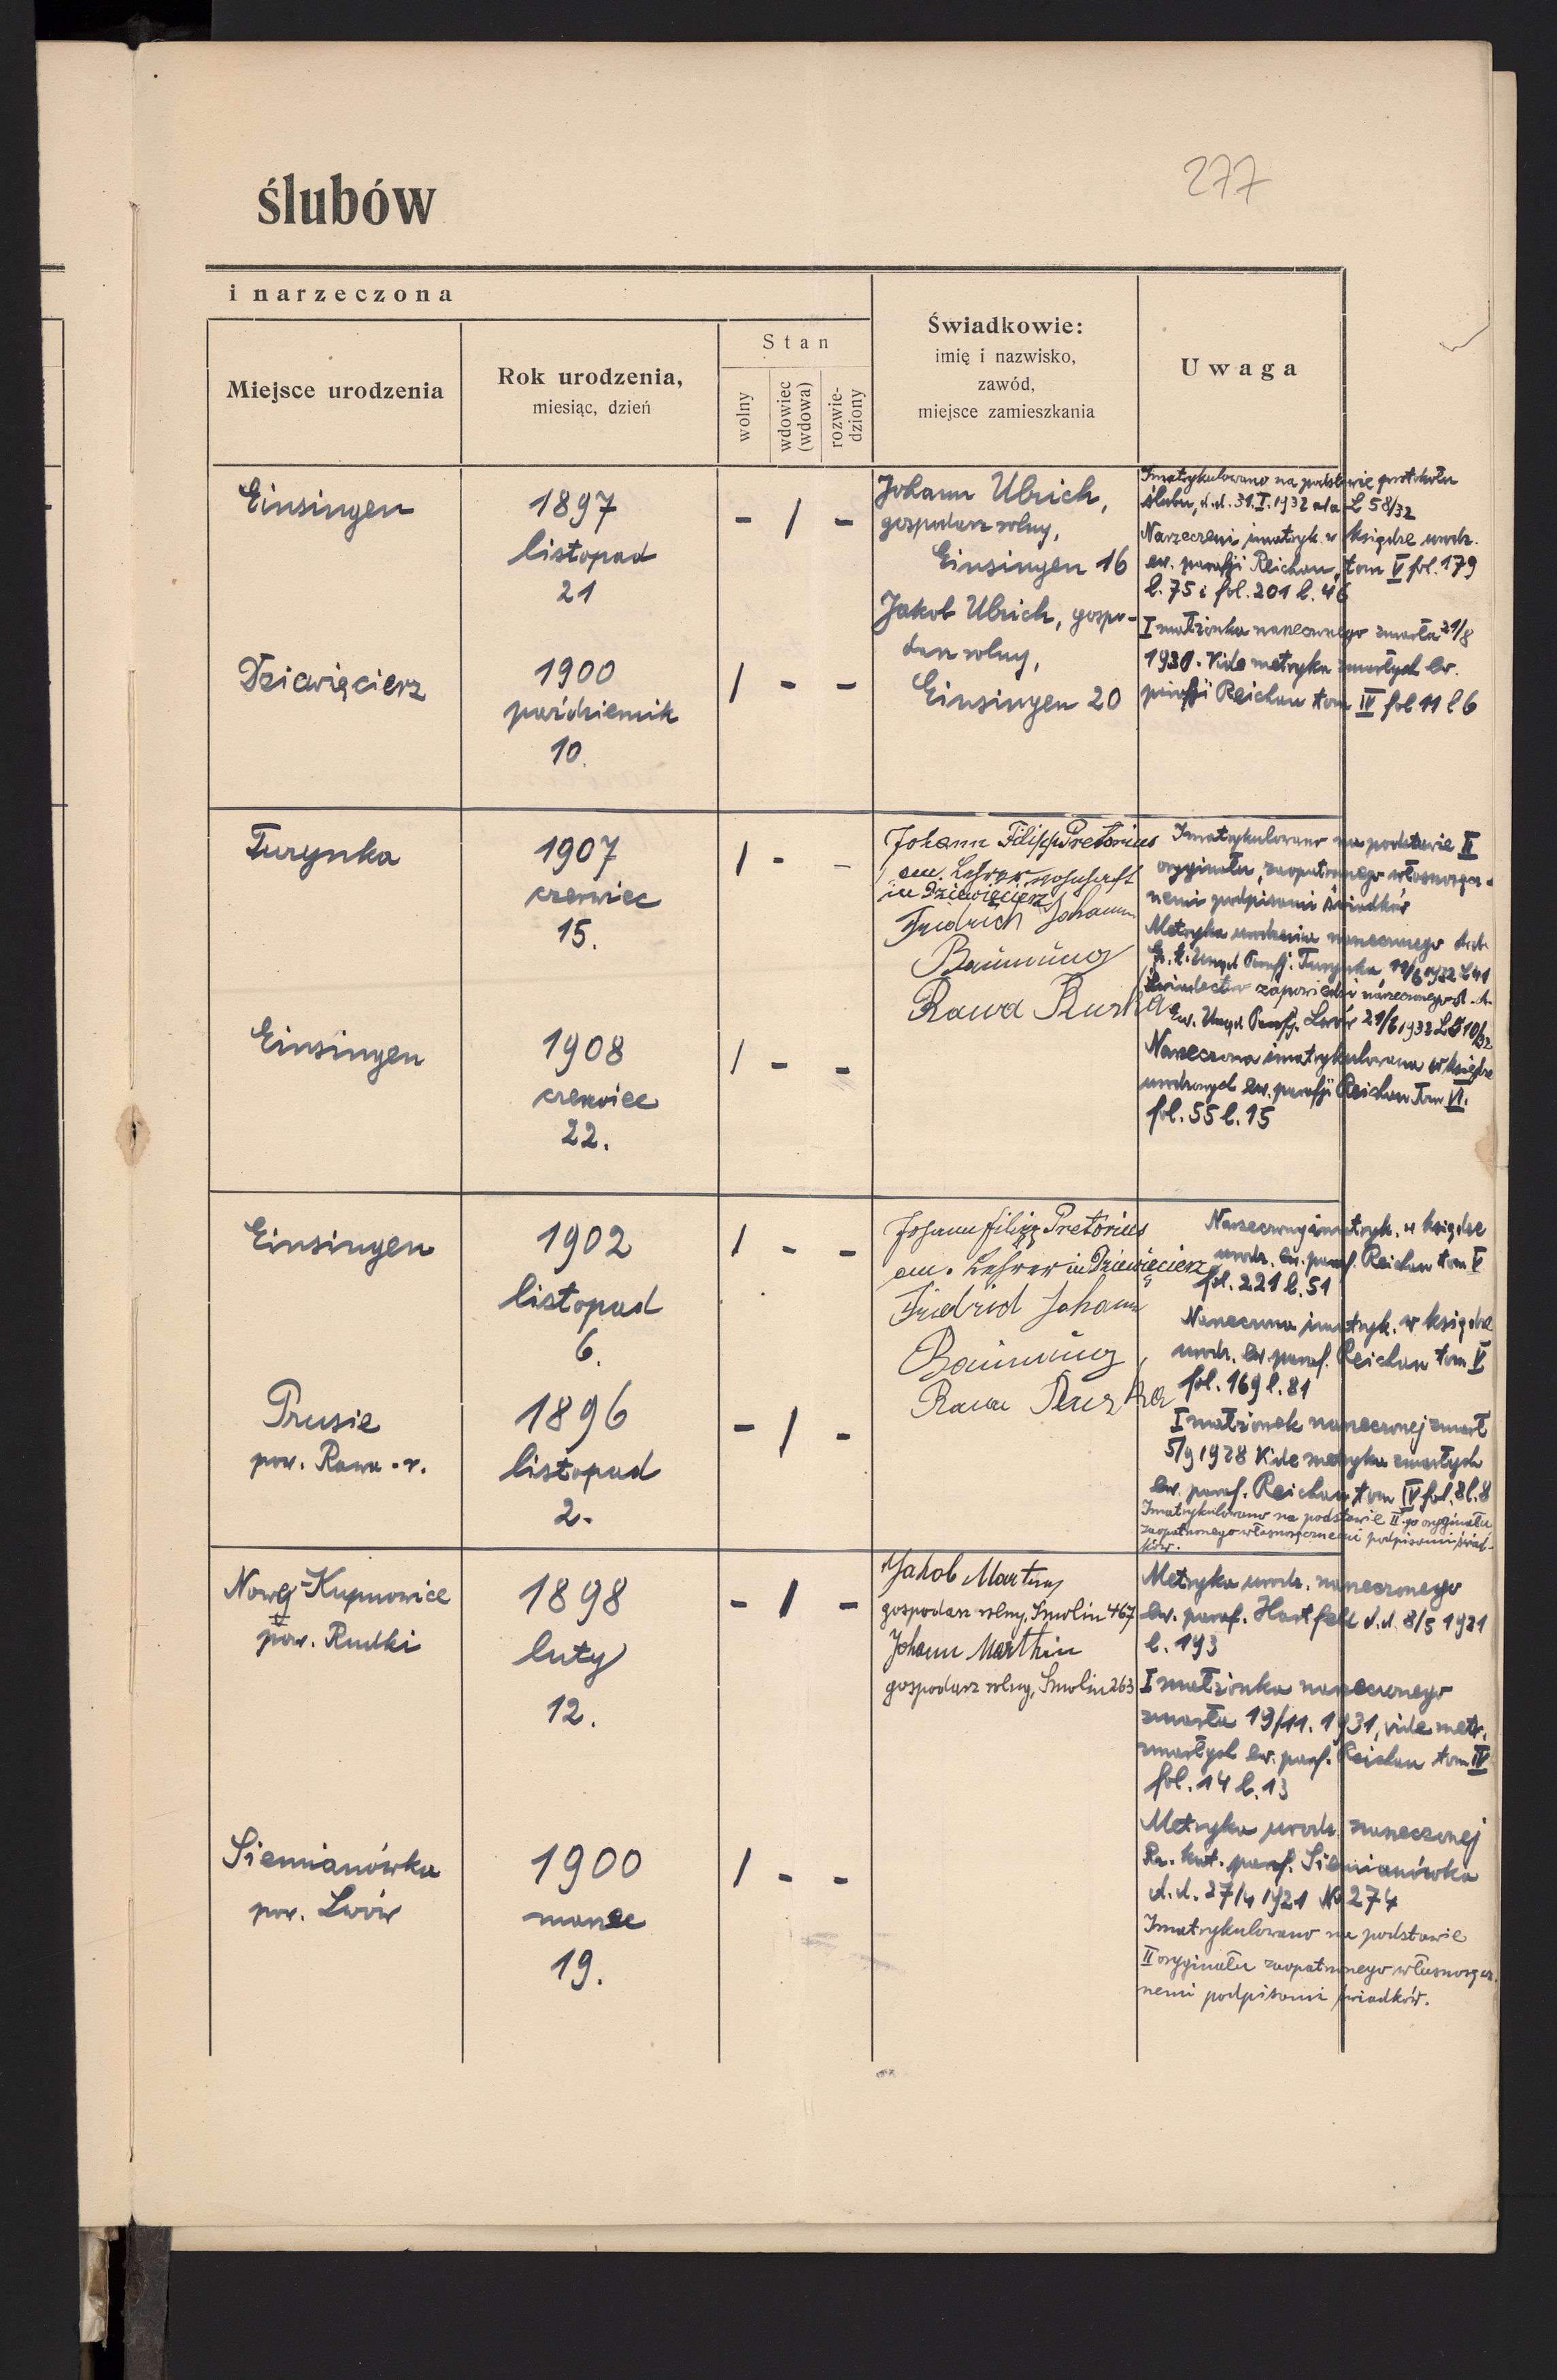 277
ślubów
i narzeczona
Miejsce urodzenia
Rok urodzenia,
miesiąc, dzień
Stan
wolny
wdowiec
(wdowa)
rozwie-
dziony
Świadkowie:
imię i nazwisko,
zawód,
miejsce zamieszkania
Uwaga
Einsingen
1897
listopad
21
- / -
Dziewięcierz
1900
październik
10.
/ - -
Johann Ulrich,
gospodarz rolny,
Einsingen 16
Jakob Ulrich, gospo-
darz rolny,
Einsingen 20
Imatrykulowano na podstawie protokołu
ślubu, d.d. 31.I.1932 L 58/32
Narzeczeni imatryk. w księdze urodz.
ew. parafji Reichau, tom V fol. 179
l. 75 i fol. 201 l. 46
I małżonka narzeczonego zmarła 21/8
1930. Vide metryka zmarłych ew.
parafji Reichau tom IV fol 11 l 6
Turynka
1907
czerwiec
15.
/ - -
Einsingen
1908
czerwiec
22.
/ - -
Johann Filipp Pretorius
em. Lehrer wohnhaft
in Dziewięcierz
Friedrich Johann
Rawa Ruska
Imatrykulowano na podstawie II
oryginału, zaopatrzonego własnoręcz-
nemi podpisami świadków
Metryka urodzenia narzeczonego d.d.
Urząd Parafj. Turynka 11/6 1932 L 41
Świadectwo zapowiedzi narzeczonego d.d.
Ew. Urząd Parafj. Lwów 21/6 1932
Narzeczona imatrykulowana w księdze
urodzonych ew. parafji Reichau Tom VI.
fol. 55 l. 15
Einsingen
1902
listopad
6.
/ - -
Prusie
pow. Rawa - r.
1896
listopad
2.
- / -
Johann Filipp Pretorius
em. Lehrer in Dziewięcierz
Friedrich Johann
Rawa Ruska
Narzeczony imatryk. w księdze
urodz. ew. paraf. Reichau tom V
fol. 221 l. 51
Narzeczona imatryk. w księdze
urodz. ew. paraf. Reichau tom V
fol. 169 l. 81
I małżonek narzeczonej zmarł
5/9 1928 Vide metryka zmarłych
ew. paraf. Reichau tom IV fol. 8 l. 8
Imatrykulowano na podstawie II-go oryginału
zaopatrzonego własnoręcznemi podpisami świad-
ków.
Nowe-Kupnowice
pow. Rudki
1898
luty
12.
- / -
Siemianówka
pow. Lwów
1900
marzec
19.
/ - -
Jakob Martin
gospodarz rolny, Smolin 467
Johann Marthin
gospodarz rolny, Smolin 263
Metryka urodz. narzeczonego
ew. paraf. Hartfeld d.d. 8/5 1921
l. 193
I małżonka narzeczonego
zmarła 19/11. 1931, vide metr.
zmarłych ew. paraf. Reichau tom IV
fol. 14 l. 13
Metryka urodz. narzeczonej
Rz. kat. paraf. Siemianówka
d.d. 27/4 1921 No 274
Imatrykulowano na podstawie
II oryginału zaopatrzonego własnoręcz-
nemi podpisami świadków.